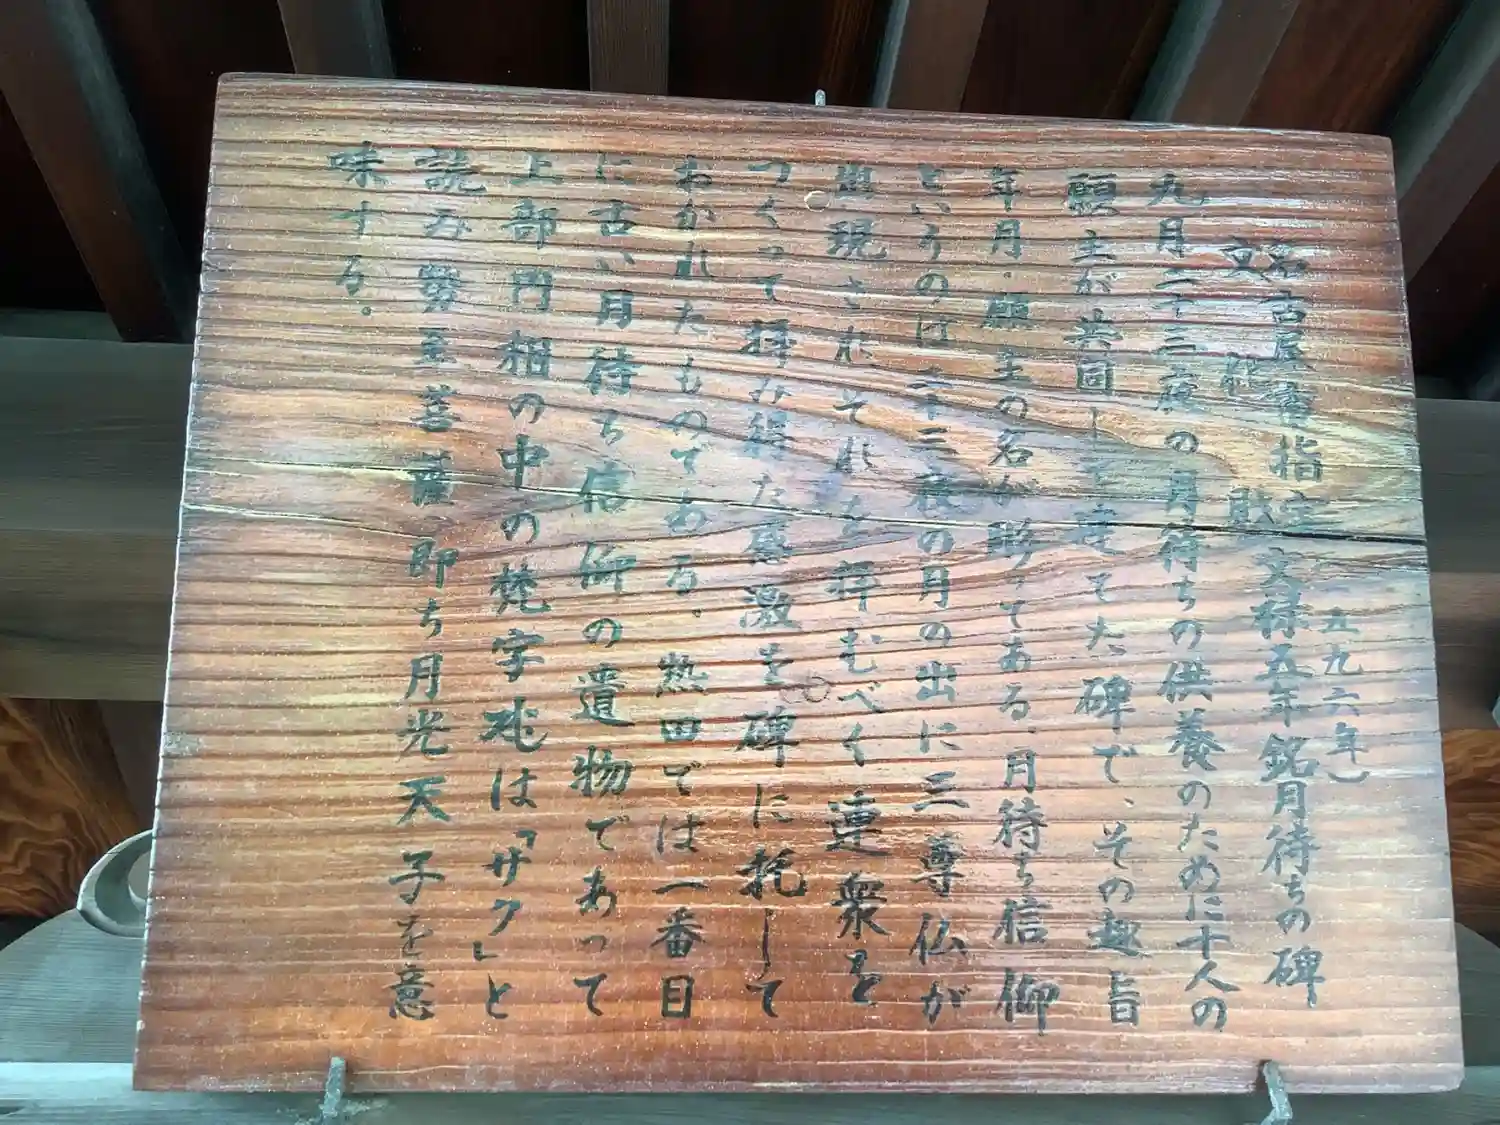 名古屋市指定
文化財
文禄五年銘月待ちの碑
五九六年)
九月二十三夜の月待ちの供養のために十人の
願主が共同して建てた碑で、その趣旨
年月・願主の名が彫ってある。月待ち信仰
というのは二十三夜の月の出に三尊仏が
出現されそれを拝むべく連衆を
つくって拝み得た感激を碑に托して
おかれたものである。熱田では一番目
に古い月待ち信仰の遺物であって
上部円相の中の梵字は「サク」と
読み勢至菩薩、即ち月光天子を意
味する。